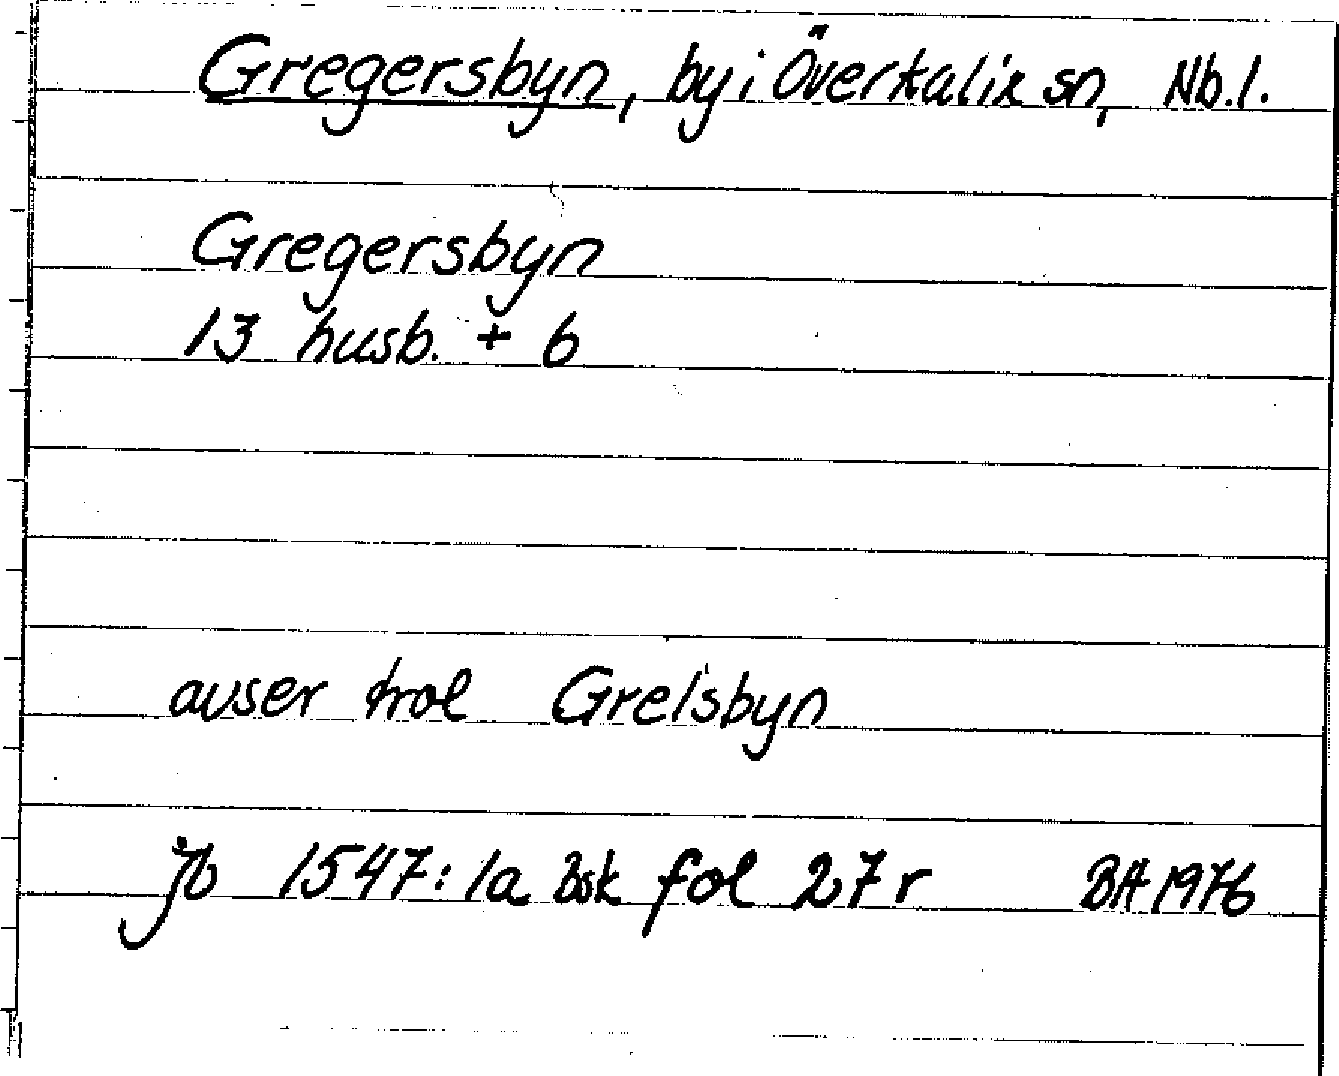 Gregersbyn, by i Överkalix sn, Nb.l.
Gregersbyn
13 husb. + 6
avser trol Grelsbyn
jb 1547:1a Bsk fol 27r BA 1976